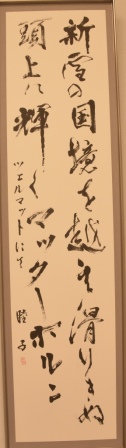 新雪の国境を越え滑りきぬ
頭上に輝くマッターホルン
ツェルマットにて
睦子